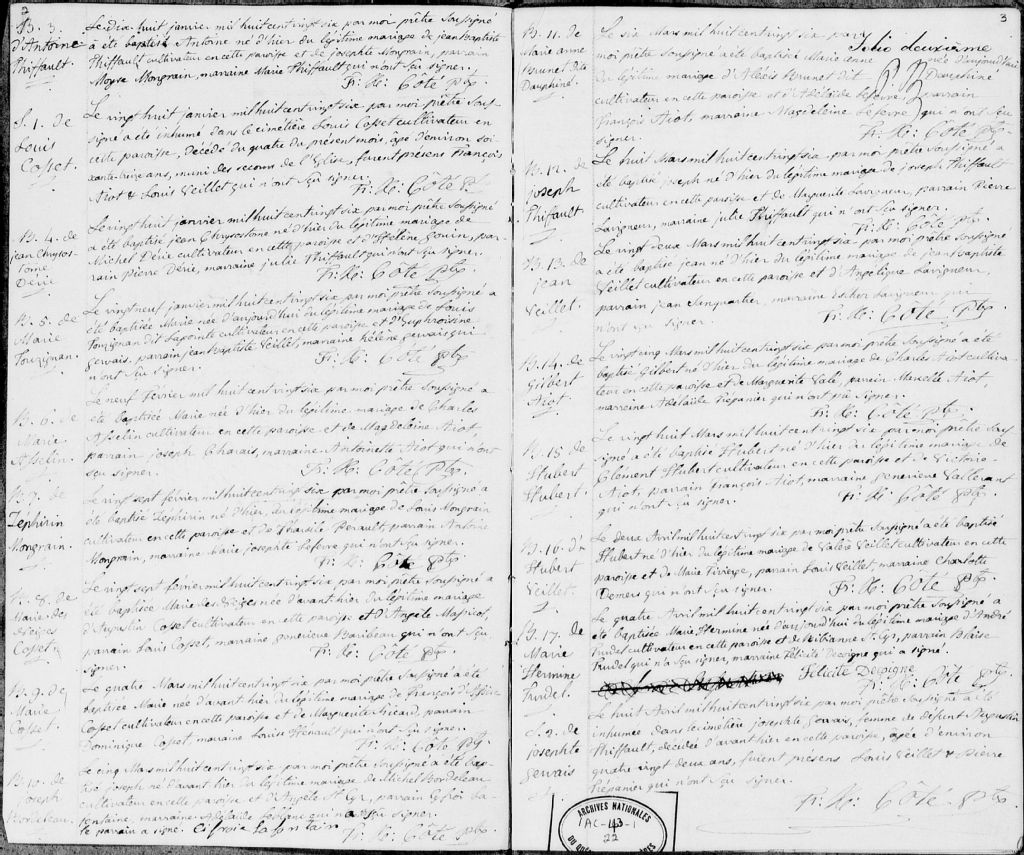 2
B. 3.
d'Antoine
Thiffault.
Le dix huit janvier mil huit cent vingt six par moi prêtre soussigné
a été baptisé Antoine né d'hier du légitime mariage de jean Baptiste
Thiffault cultivateur en cette paroisse et de josephte Mongrain, parrain
Moyse Mongrain, marraine Marie Thiffault qui n'ont sçu signer.
Fr: Xr: Côté Ptr
S. 1. de
Louis
Cosset.
Le vingt huit janvier mil huit cent vingt six par moi prêtre sous-
signé a été inhumé dans le cimétière Louis Cosset cultivateur en
cette paroisse, décédé du quatre du présent mois, âgé d'environ soi-
xante treize ans, muni des secours de l'Eglise, furent présens François
Aiot & Louis Veillet qui n'ont sçu signer.
Fr: Xr: Côté Ptr
B. 4. de
jean Chrysos-
tome
Déric
Le vingt huit janvier mil huit cent vingt six par moi prêtre soussigné
a été baptisé jean Chrysostome né d'hier du légitime mariage de
Michel Déric cultivateur en cette paroisse et d'Hélène Gouin, par-
rain Pierre Déric, marraine julie Thiffault qui n'ont sçu signer.
Fr: Xr: Côté Ptr
B. 5. de
Marie
Le vingt neuf janvier mil huit cent vingt six par moi prêtre soussigné a
été baptisée Marie née d'aujourd'hui du légitime mariage de Louis
dit Lapointe cultivateur en cette paroisse et d'Euphroisine
Gervais, parrain jean Baptiste Veillet, marraine hélène Gervais qui
n'ont sçu signer.
Fr: Xr: Côté Ptr
B. 6. de
Marie
Asselin.
Le neuf Février mil huit cent vingt six par moi prêtre soussigné a
été baptisée Marie née d'hier du légitime mariage de Charles
Asselin cultivateur en cette paroisse et de Magdeleine Aiot,
parrain joseph Charais, marraine Antoinette Aiot qui n'ont
sçu signer.
Fr: Xr: Côté Ptr
B. 7. de
Zéphirin
Mongrain.
Le vingt sept février mil huit cent vingt six par moi prêtre soussigné a
été baptisé Zéphirin né d'hier, du légitime mariage de Louis Mongrain
cultivateur en cette paroisse et de Tharsile Renault, parrain Antoine
Mongrain, marraine Marie josephte Lefevre qui n'ont sçu signer.
Fr: Xr: Côté Ptr
B. 8. de
Marie des
Neiges
Cosset.
Le vingt sept février mil huit cent vingt six par moi prêtre soussigné a
été baptisée Marie des Neiges née d'avant hier du légitime mariage
d'Augustin Cosset cultivateur en cette paroisse et d'Angèle Massicot,
parrain Louis Cosset, marraine genevieve Baribeau qui n'ont sçu
signer.
Fr: Xr: Côté Ptr
B. 9. de
Marie
Cosset.
Le quatre Mars mil huit cent vingt six par moi prêtre soussigné a été
baptisée Marie née d'avant hier du légitime mariage de François
Cosset cultivateur en cette paroisse et de Marguerite Ricard, parrain
Dominique Cosset, marraine Louise Hénault qui n'ont sçu signer.
Fr: Xr: Côté Ptr
B. 10. de
joseph
Bordeleau.
Le cinq Mars mil huit cent vingt six par moi prêtre soussigné a été bap-
tisé joseph né d'avant hier du légitime mariage de Michel Bordeleau
cultivateur en cette paroisse et d'Angèle St Cyr, parrain
marraine Adelaïde qui n'a sçu signer
le parrain a signé. lafontain
Fr: Xr: Côté Ptr
3
folio deuxième
B. 11. de
Marie anne
Brunet dit
Dauphiné.
Le six Mars mil huit cent vingt six par
moi prêtre soussigné a été baptisée Marie Anne née d'aujourd'hui
du légitime mariage d'Alexis Brunet dit Dauphiné
cultivateur en cette paroisse et d'Adelaïde Lefevre, parrain
François Aiot, marraine Magdeleine Lefevre qui n'ont sçu
signer.
Fr: Xr: Côté Ptr
B. 12. de
joseph
Thiffault.
Le huit Mars mil huit cent vingt six par moi prêtre soussigné a
été baptisé joseph né d'hier du légitime mariage de joseph Thiffault
cultivateur en cette paroisse et de Marguerite Lavigneur, parrain Pierre
Lavigneur, marraine julie Thiffault qui n'ont sçu signer.
Fr: Xr: Côté Ptr
B. 13. de
jean
Veillet.
Le vingt deux Mars mil huit cent vingt six par moi prêtre soussigné
a été baptisé jean né d'hier du légitime mariage de jean Baptiste
Veillet cultivateur en cette paroisse et d'Angelique Lavigneur,
parrain jean marraine Esther Lavigneur qui
n'ont sçu signer.
Fr: Xr: Côté Ptr
B. 14. de
Gilbert
Aiot.
Le vingt cinq Mars mil huit cent vingt six par moi prêtre soussigné a été
baptisé Gilbert né d'hier du légitime mariage de Charles Aiot cultiva-
teur en cette paroisse et de Marguerite Valé, parrain Marcelle Aiot,
marraine Adelaïde Trépanier qui n'ont pû signer.
Fr: Xr: Côté Ptr
B. 15. de
Hubert
Hubert.
Le vingt huit Mars mil huit cent vingt six par moi prêtre sous-
signé a été baptisé Hubert né d'hier du légitime mariage de
Clement Hubert cultivateur en cette paroisse et de Victoire
Aiot, parrain François Aiot, marraine genevieve
qui n'ont sçu signer.
Fr: Xr: Côté Ptr
B. 16. d'
Hubert
Veillet.
Le deux Avril mil huit cent vingt six par moi prêtre soussigné a été baptisé
Hubert né d'hier du légitime mariage de Valère Veillet cultivateur en cette
paroisse et de Marie parrain Louis Veillet, marraine Charlotte
Demers qui n'ont sçu signer.
Fr: Xr: Côté Ptr
B. 17. de
Marie
Hermine
Trudel.
Le quatre Avril mil huit cent vingt six par moi prêtre soussigné a
été baptisée Marie Hermine née d'aujourd'hui du légitime mariage d'André
Trudel cultivateur en cette paroisse et de Bibianne St. Cyr, parrain Blaise
Trudel qui n'a sçu signer, marraine Félicité Decoigne qui a signé.
Félicité Decoigne
Fr: Xr: Côté Ptr
S. 2. de
josephte
Gervais
Le huit Avril mil huit cent vingt six par moi prêtre soussigné a été
inhumée dans le cimétière josephte Gervais, femme de défunt Augustin
Thiffault, décédée d'avant hier en cette paroisse, agée d'environ
quatre vingt deux ans, furent présens Louis Veillet & Pierre
Trépanier qui n'ont sçu signer.
Fr: Xr: Côté Ptr
ARCHIVES NATIONALES
AC-43-1
22